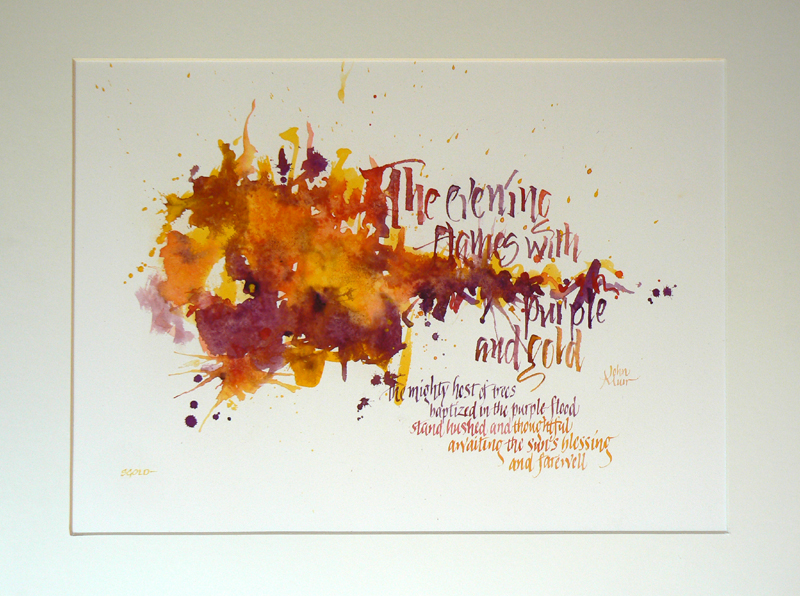 The evening
flames with
purple
and gold
John
Muir
the mighty host of trees
baptized in the purple flood
stand hushed and thoughtful
awaiting the sun's blessing
and farewell